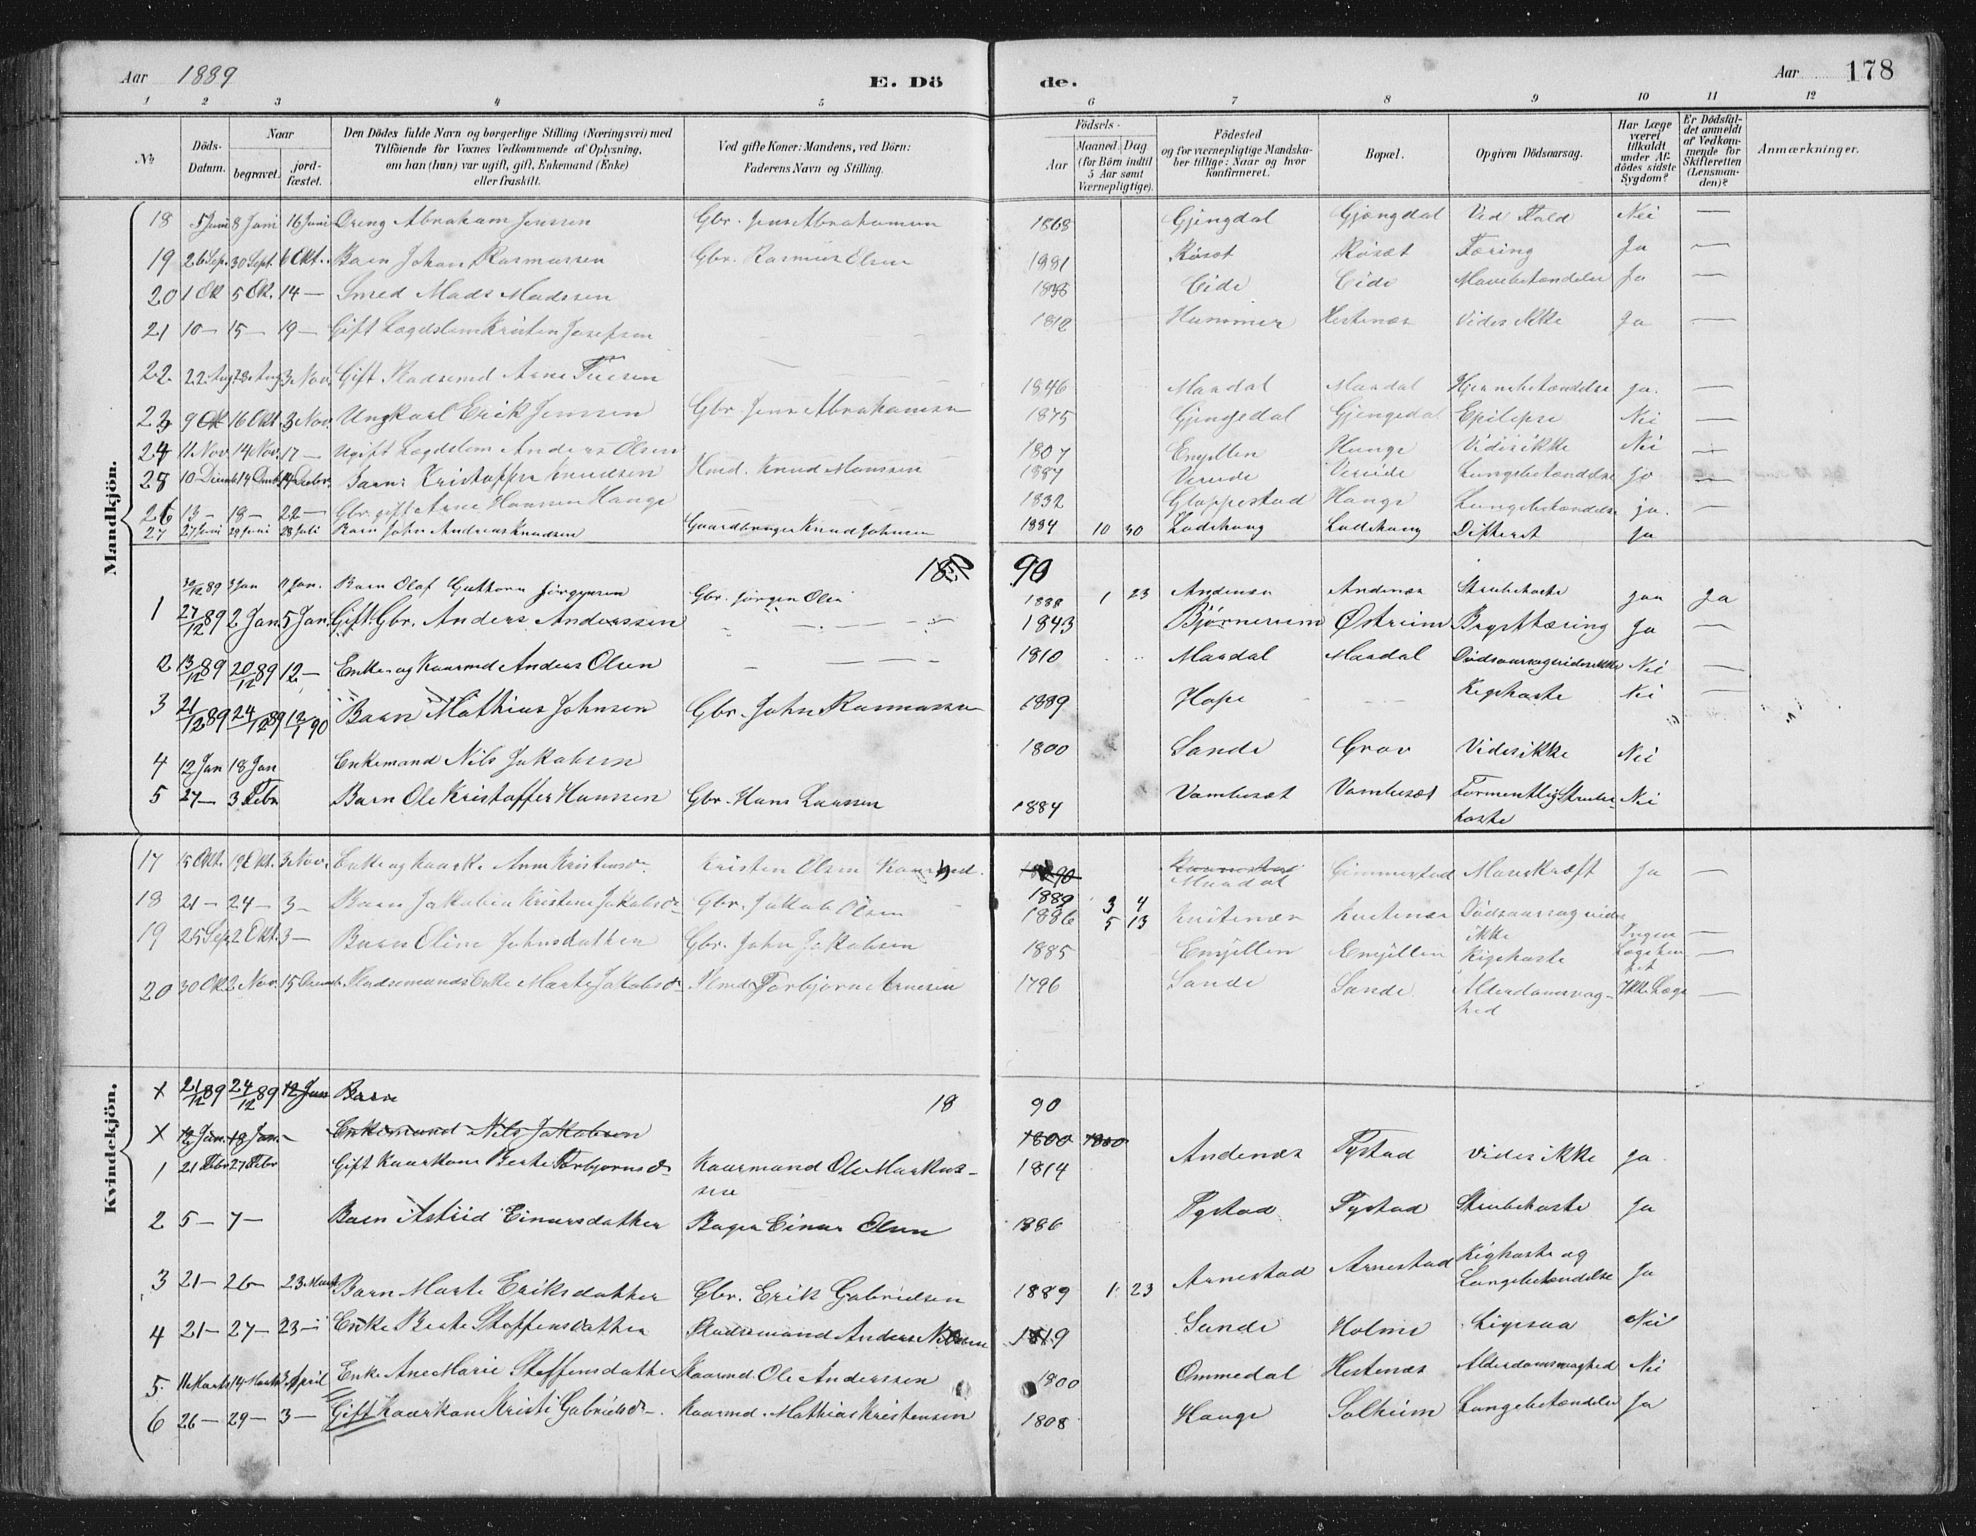 Aar 1889 E. Dö de. Aar 178
1 2 3 4 5 6 7 8 9 10 11 12
№ Döds-Datum. Naar begravet. jordfæstet. Den Dödes fulde Navn og borgerlige Stilling (Næringsvei) med Tilföiende for Voxnes Vedkommende af Oplysning, om han (hun) var ugift, gift, Enkemand (Enke) eller fraskilt. Ved gifte Koner: Mandens, ved Börn: Faderens Navn og Stilling. Födsels- Aar Maaned Dag (for Börn indtil 5 Aar samt Værnepligtige). Födested og for værnepligtige Mandskaber tillige: Naar og hvor konfirmeret. Bopæl. Opgiven Dödsaarsag. Har Læge været tilkaldt under Afdödes sidste Sygdom? Er Dödsfaldet anmeldt af Vedkommende for Skifteretten (Lensmanden)? Anmærkninger.
Mandkjön.
18 5 Juni 8 Juni 16 Juni Dreng Abraham Jenssen Gbr. Jens Abrahamsen 1868 Gjengdal Gjengdal Ved Fald Nei —
19 26 Sep. 30 Sept. 6 Okt. Barn Johan Rasmussen Gbr. Rasmus Olsen 1881 Røsæt Røsæt Tæring Ja —
20 1 Ok 5 Ok. 14 — Smed Mads Madssen 1838 Eide Eide Mavebetændelse Ja —
21 10 — 15 — 19 — Gift Lægdslem Kristen Josefsen 1812 Hammer Hestenæs Vides ikke Ja —
22 22 Aug 28 Aug 3 Nov. Gift Pladsemd Arne 1846 Maadal Maadal Hjernebetændelse ja. —
23 9 Ok 16 Okt 3 Nov. Ungkarl Erik Jenssen Gbr. Jens Abrahamsen 1875 Gjengedal Gjengedal Epilepsi Nei —
24 11 Nov 14 Nov. 17 — Ugift Lægdslem Anders Olsen 1807 Emjellen Hauge Vides ikke Nei —
25 10 14 Barn Kristoffer Knudsen Hmd. Knud Monssen 1887 Vereide Vereide Lungebetændelse jo —
26 13 — 18 — 22 — Gbr. gift Arne Hansen Hauge 1832 Gloppestad Hauge Lungebetændelse ja. —
27 27 Juni 29 Juni 28 Juli Barn John Andreas Knudsen Gaardbruger Knud Johnsen 1884 10 30 Ladehaug Ladehaug Difterit Ja
18 90
30/12 89 3 Jan 11 Jan. Barn Olaf Guthorm Jörgensen Gbr. Jörgen Olsen 1888 1 23 Andenæs Andenæs Strubehoste jaa Ja
1 27/12 89 2 Jan 5 Jan. Gift Gbr. Anders Anderssen 1843 Bjørnereim Østreim Brysttæring Ja —
2 13/12 89 20/12 89 12 — Enke- og Kaarmd Anders Olsen 1810 Maadal Maadal Dødsaarsag vides ikke Nei —
3 21/12 89 24/12 89 12/1 90 Barn Mathias Johnsen Gbr. John Rasmussen 1889 Hope — Kighoste Nei —
4 12 Jan 18 Jan Enkemand Nils Jakobsen 1800 Sande Grov Vides ikke Nei
5 27 — 3 Febr Barn Ole Kristoffer Hanssen Gbr. Hans Larssen 1884 Vambesæt Vambesæt Formentlig Strube-
hoste Nei
Kvindekjön.
17 15 Okt. 19 Okt. 3 Nov. Enke og Kaark. Anne Kristensd. Kristen Olsen 1890 Maadal Gimmestad Mavekræft Ja —
18 21 — 24 — 3 — Barn Jakobin Kristine Jakobsd Gbr. Jakob Olsen 1889 3 4
1886 5 13 Hestenæs Hestenæs Dødsaarsag vides
ikke
19 25 Sep 2 Okt. 3 — Barn Oline Johnsdatter Gbr. John Jakobsen 1885 Emjellen Emjellen Kighoste Ingen —
20 30 Ok 2 Nov. 15 Pladsemands Enke Marte Jakobsd Torbjørn Arnesen 1796 Sande Sande Alderdomssvag-
hed Ikke Læge —
x 21/12 89 24/12 89 12 Jan Barn
18 90
x 12 Jan. 18 Jan. — Enkemand Nils Jakobsen 1800 1800
1 21 Febr 27 Febr Gift Kaarkone Berte Torbjørnsd Kaarmand Ole Markus-
sen 1814 Andenæs Rystad Vides ikke Ja
2 5 — 7 — Barn Astrid Einarsdatter Bager Einar Olsen 1886 Rystad Rystad Strubehoste Ja
3 21 — 26 — 23 Marts Barn Marte Eriksdatter Gbr. Erik Gabrielsen 1889 1 23 Arnestad Arnestad Kighoste og
Lungebetændelse Ja
4 21 — 27 — 23 — Enke Berte Steffensdatter Pladsemand Anders Nilssen 1819 Sande Holme Ligesaa Nei
5 11 Marts 14 Marts 3 April Enke Ane Marie Steffensdatter Kaarmd. Ole Anderssen 1800 Ommedal Hestenæs Alderdomssvaghed Nei
6 26 — 29 — 3 — Gift Kaarkone Kristi Gabrielsd — Kaarmd. Mathias Kristensen 1808 Hauge Solheim Lungebetændelse Ja